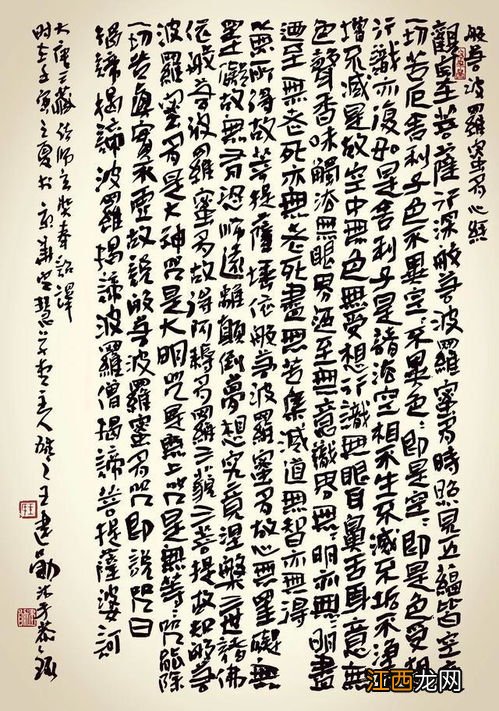 般若波羅蜜多心經
觀自在菩薩行深般若波羅蜜多時照見五蘊皆空度
一切苦厄舍利子色不異空々不異色々即是空々即是色受想
行識亦復如是舍利子是諸法空相不生不滅不垢不淨
增不減是故空中無色無受想行識無眼耳鼻舌身意無
色聲香味觸法無眼界迺至無意識界無々明亦無々明盡
迺至無老死亦無老死盡無苦集滅道無智亦無得
以無所得故菩提薩埵依般若波羅蜜多故心無罣礙無
罣礙故無有恐怖遠離顛倒夢想究竟涅槃三世諸佛
依般若波羅蜜多故得阿耨多羅三藐三菩提故知般若
波羅蜜多是大神咒是大明咒是無上咒是無等々咒能除
一切苦真實不虛故說般若波羅蜜多咒即說咒曰
揭諦揭諦波羅揭諦波羅僧揭諦菩提薩婆訶
大唐三藏法師玄奘奉詔譯
時在壬寅之夏於京華空慧主人王建勛恭錄
江西龙网